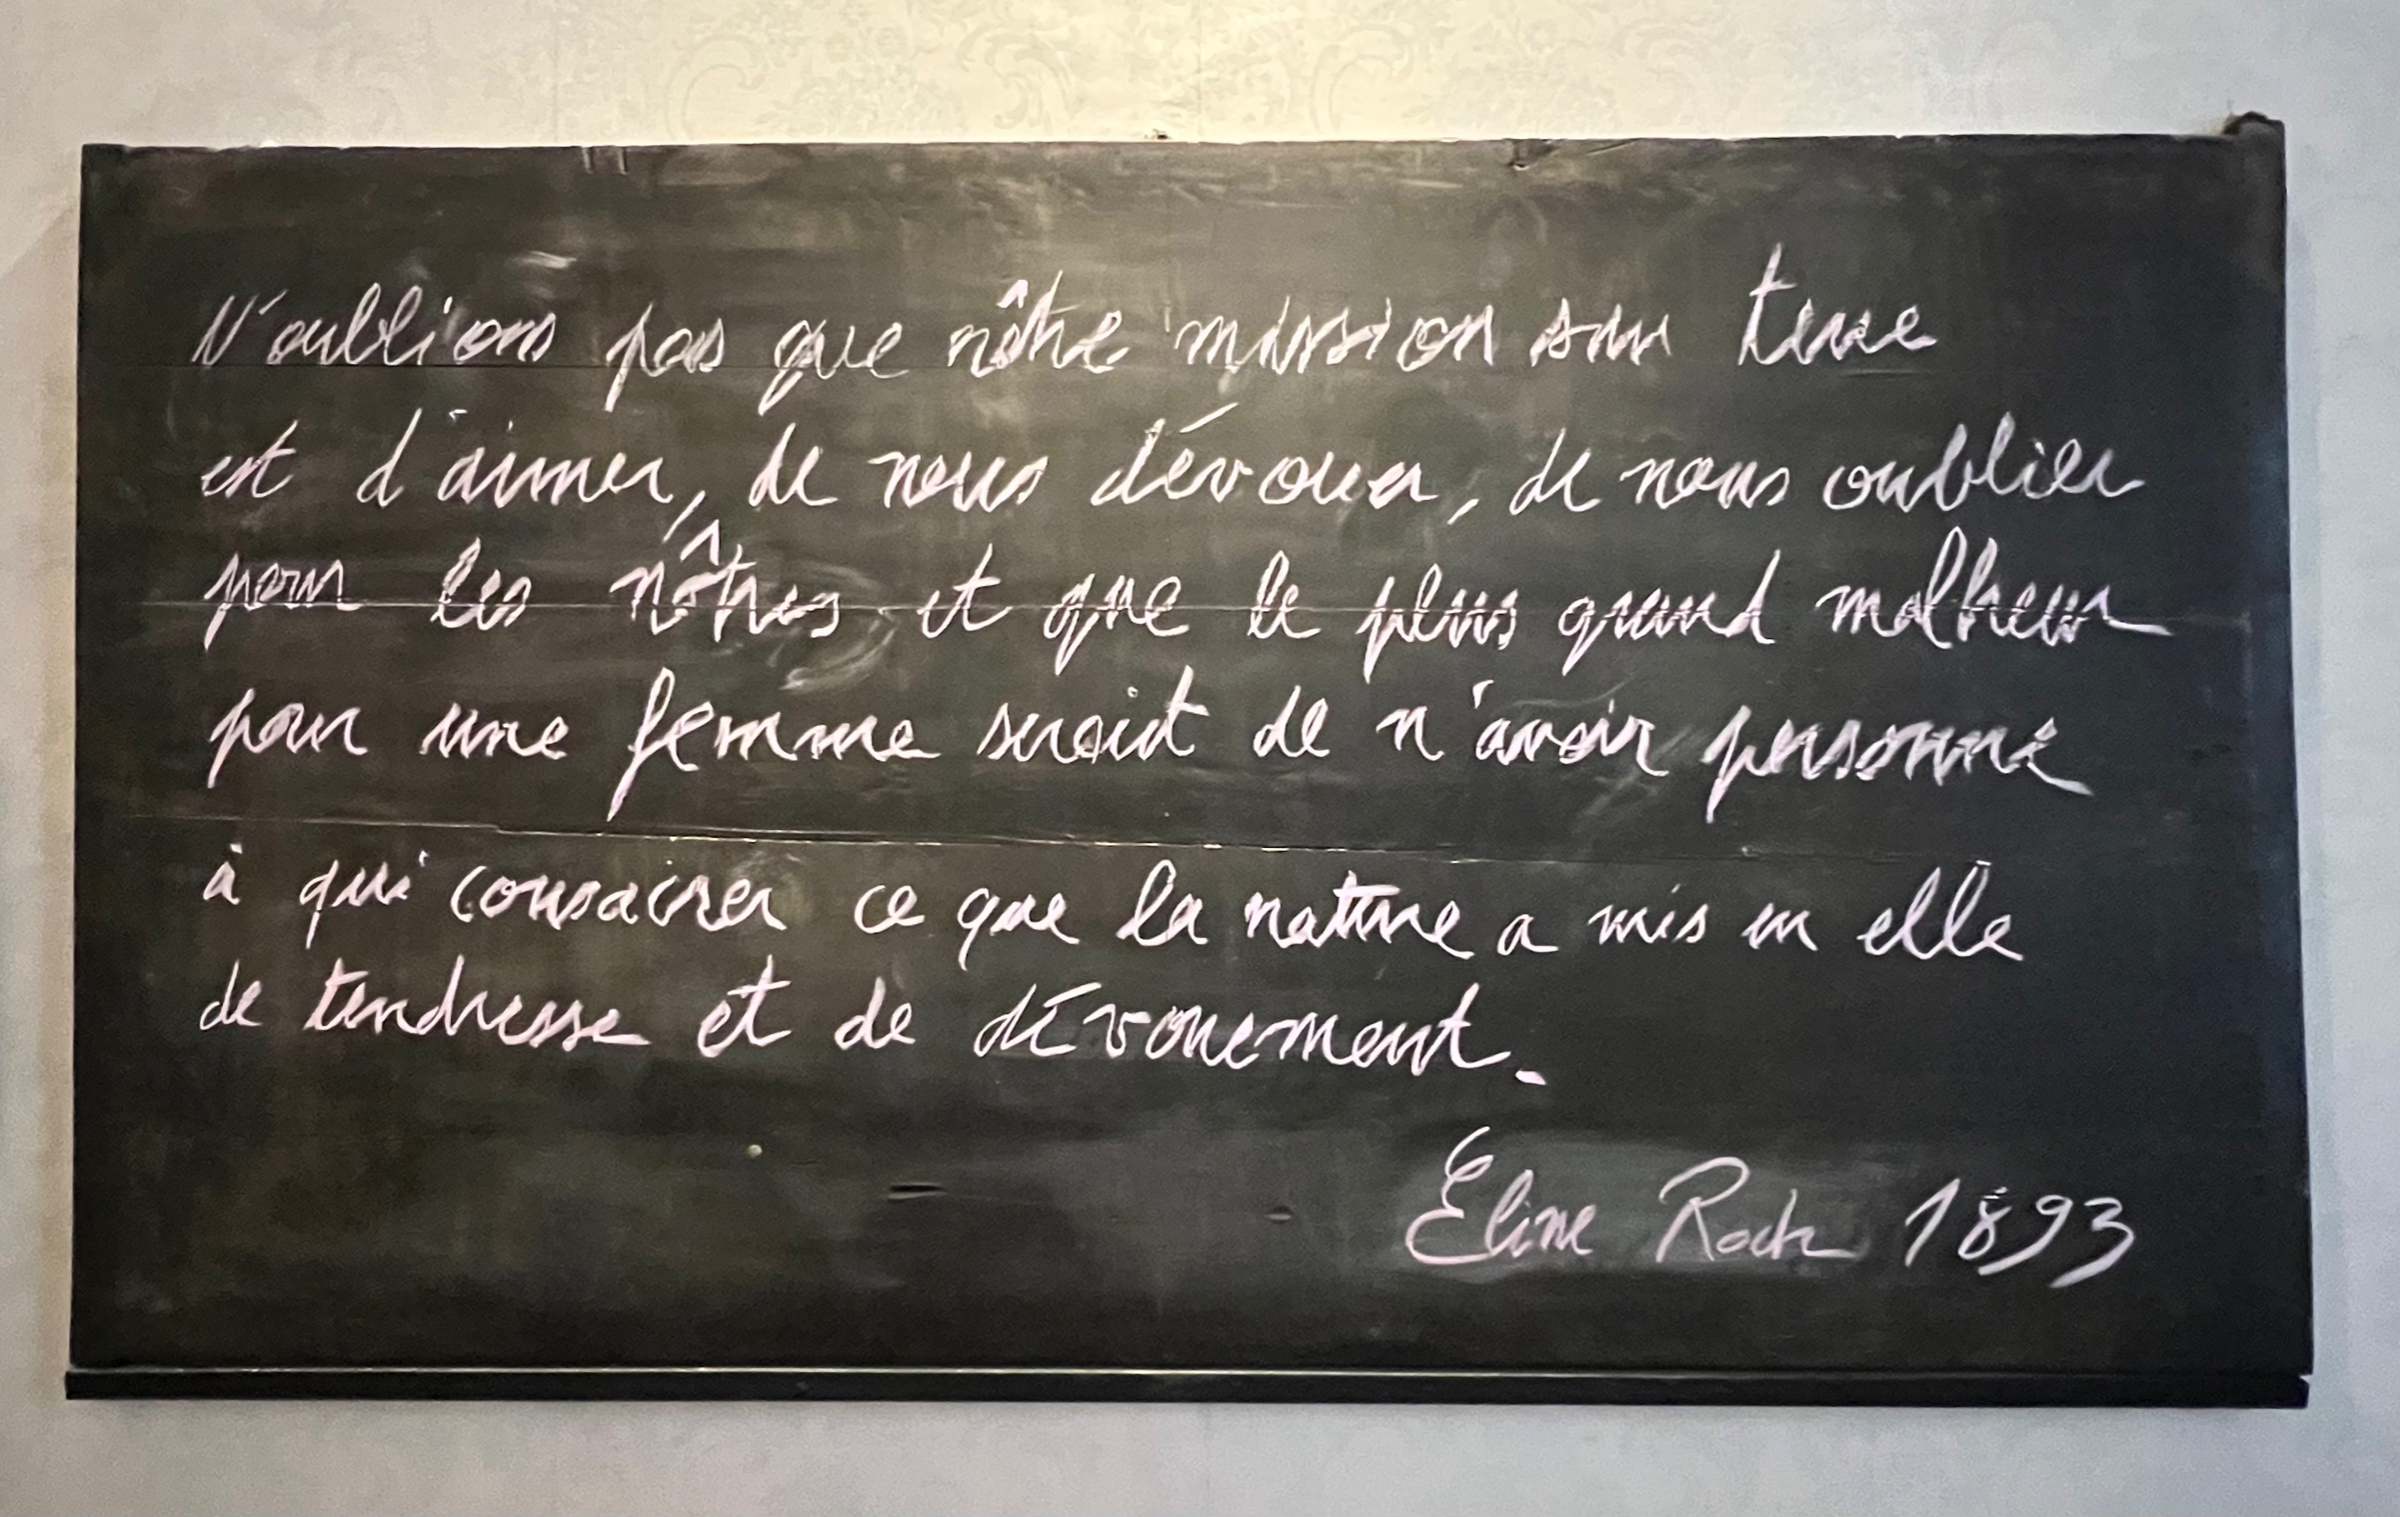 N'oublions pas que nôtre mission sur terre
est d'aimer, de nous dévouer, de nous oublier
pour les nôtres et que le plus grand malheur
pour une femme serait de n'avoir personne
à qui consacrer ce que la nature a mis en elle
de tendresse et de dévouement.
Eline Roch 1893